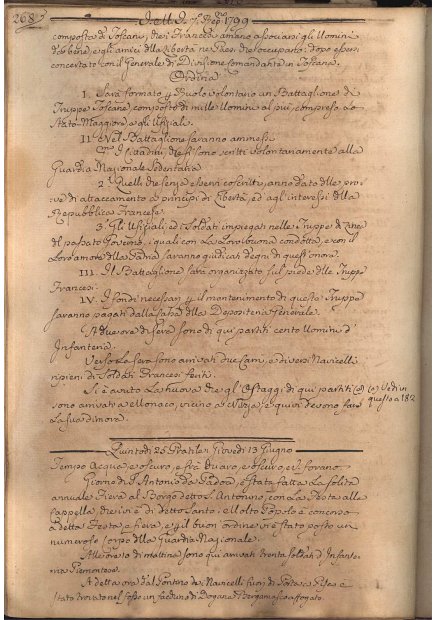 268
Dell' A. 7. Rep.no 1799
composta di Toscani, che i Francesi amano associarsi gli Uomini
da bene, e gli amici della Libertà ne Paesi che occupano: dopo essersi
concertato con il Generale di Divisione Comandante in Toscana.
Ordina
I. Sarà formato per Ruolo volontario un Battaglione di
Truppe Toscane, composto di mille Uomini al più, compreso lo
Stato-Maggiore, e gli Ufiziali.
II. Nel Battaglione saranno ammessi
I Cittadini che si sono scritti volontariamente alla
Guardia Nazionale Sedentaria
2. Quelli che senza esservi coscritti, anno dato delle pro-
ve di attaccamento a' principj di Libertà, ed agl' interessi della
Repubblica Francese.
3. Gli Ufiziali, ed i Soldati impiegati nelle Truppe di Linea
del passato Governo, i quali con la loro buona condotta, e con il
loro amore della Patria saranno giudicati degni di quest' onore.
III. Il Battaglione sarà organizzato sul piede delle Truppe
Francesi.
IV. I fondi necessari per il mantenimento di questa Truppa
saranno pagati dalla Cassa della Depositeria Generale.
A due ore di sera sono di qui partiti cento Uomini d'
Infanteria.
Verso la sera sono arrivati due Cani, e diversi Navicelli
ripieni di Soldati Francesi feriti.
Si è avuto la nuova che gl' Ostaggi di qui partiti (a)
sono arrivati a Monaco, vicino a Nizza, e quivi devono fare
la sua dimora.
(a) Vedi in
questo a 182
Quintodì 25. Pratile Giovedì 13 Giugno
Tempo Acqua, e oscuro, e fra Chiaro, e oscuro, e
Giorno di S. Antonio da Padova, è stata fatta la solita
annuale Fiera al Borgo detto S. Antonino, con la Festa alla
Cappella che ivi è di detto Santo: e Molto Popolo è concorso
a detta Festa, e fiera, e per il buon' ordine vi è stato posto un
numeroso Corpo della Guardia Nazionale.
Alle ore 10 di mattina sono qui arrivati trenta Soldati d' Infante-
ria Piemontese.
A detta ora dal Pontino de' Navicelli fuori di Porta a Pisa è
stato trovato nel fosso un facchino di Dogana Bergamasco affogato.